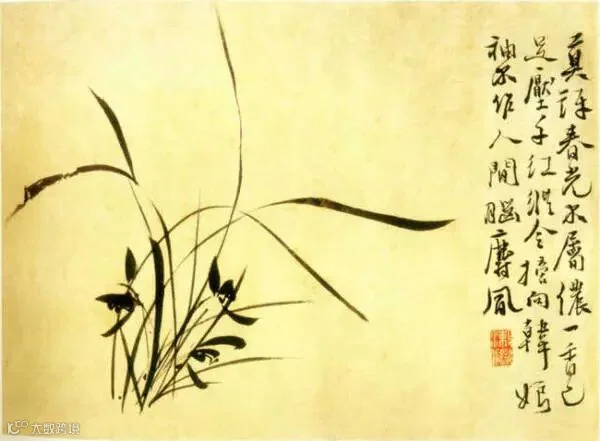 莫訝春光不屬儂一香已
足壓千紅縱令摘向韓娘
袖不作人間腦麝風
大数跨境